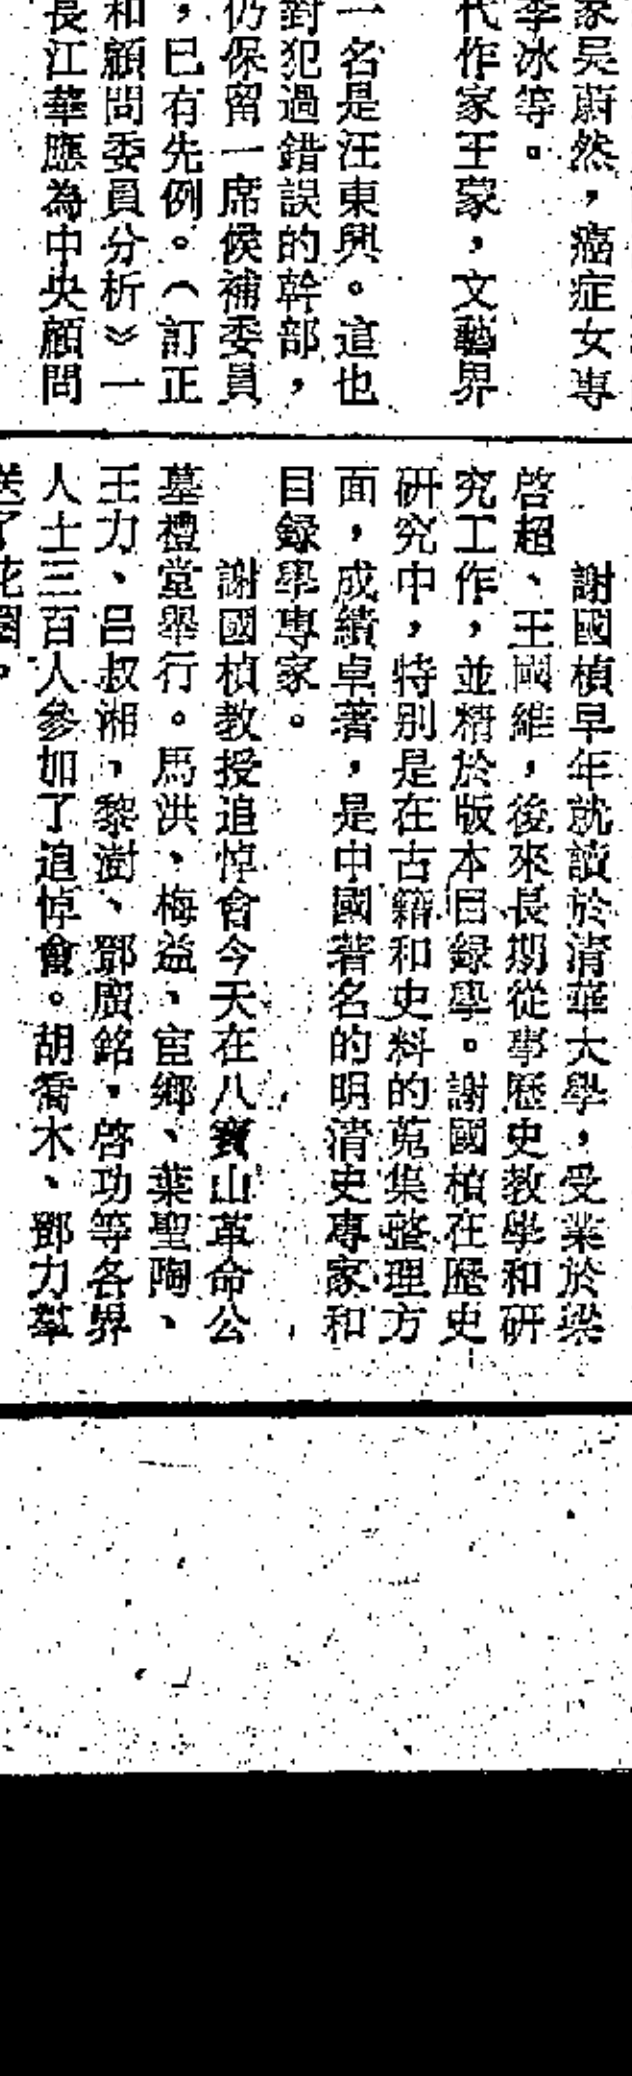 家吳蔚然，癌症女專
李冰等。
代作家王蒙，文藝界
一名是汪東興。這也
對犯過錯誤的幹部，
仍保留一席候補委員
，已有先例。（訂正
和顧問委員分析》一
長江華應為中央顧問
謝國楨早年就讀於清華大學，受業於梁
啓超、王國維，後來長期從事歷史教學和研
究工作，並精於版本目錄學。謝國楨在歷史
研究中，特別是在古籍和史料的蒐集整理方
面，成績卓著，是中國著名的明清史專家和
目錄學專家。
謝國楨教授追悼會今天在八寶山革命公
墓禮堂舉行。馬洪、梅益、宦鄉、葉聖陶、
王力、呂叔湘、黎澍、鄧廣銘、啓功等各界
人士三百人參加了追悼會。胡喬木、鄧力羣
送了花圈。